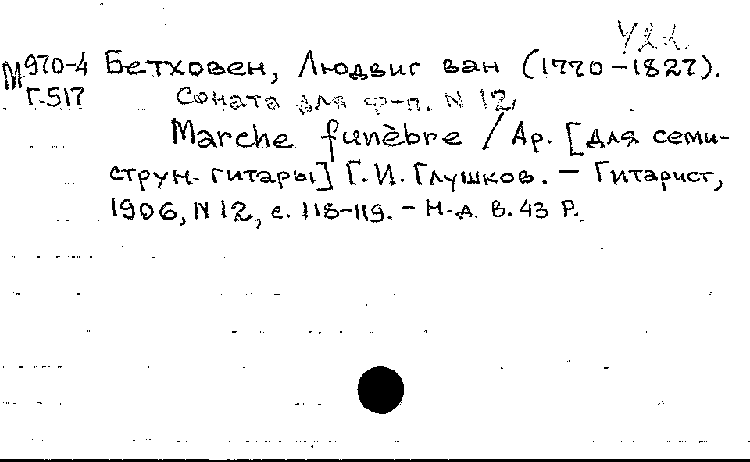 М970-4 Бетховен, Людвиг ван (1770-1827).
Г-517 Соната для ф-п. N 12,
Marche funèbre / Ар. [для семи-
струн. гитары] Г.И. Глушков. - Гитарист,
1906, N 12, с. 118-119. - Н.д. В.43 Р.